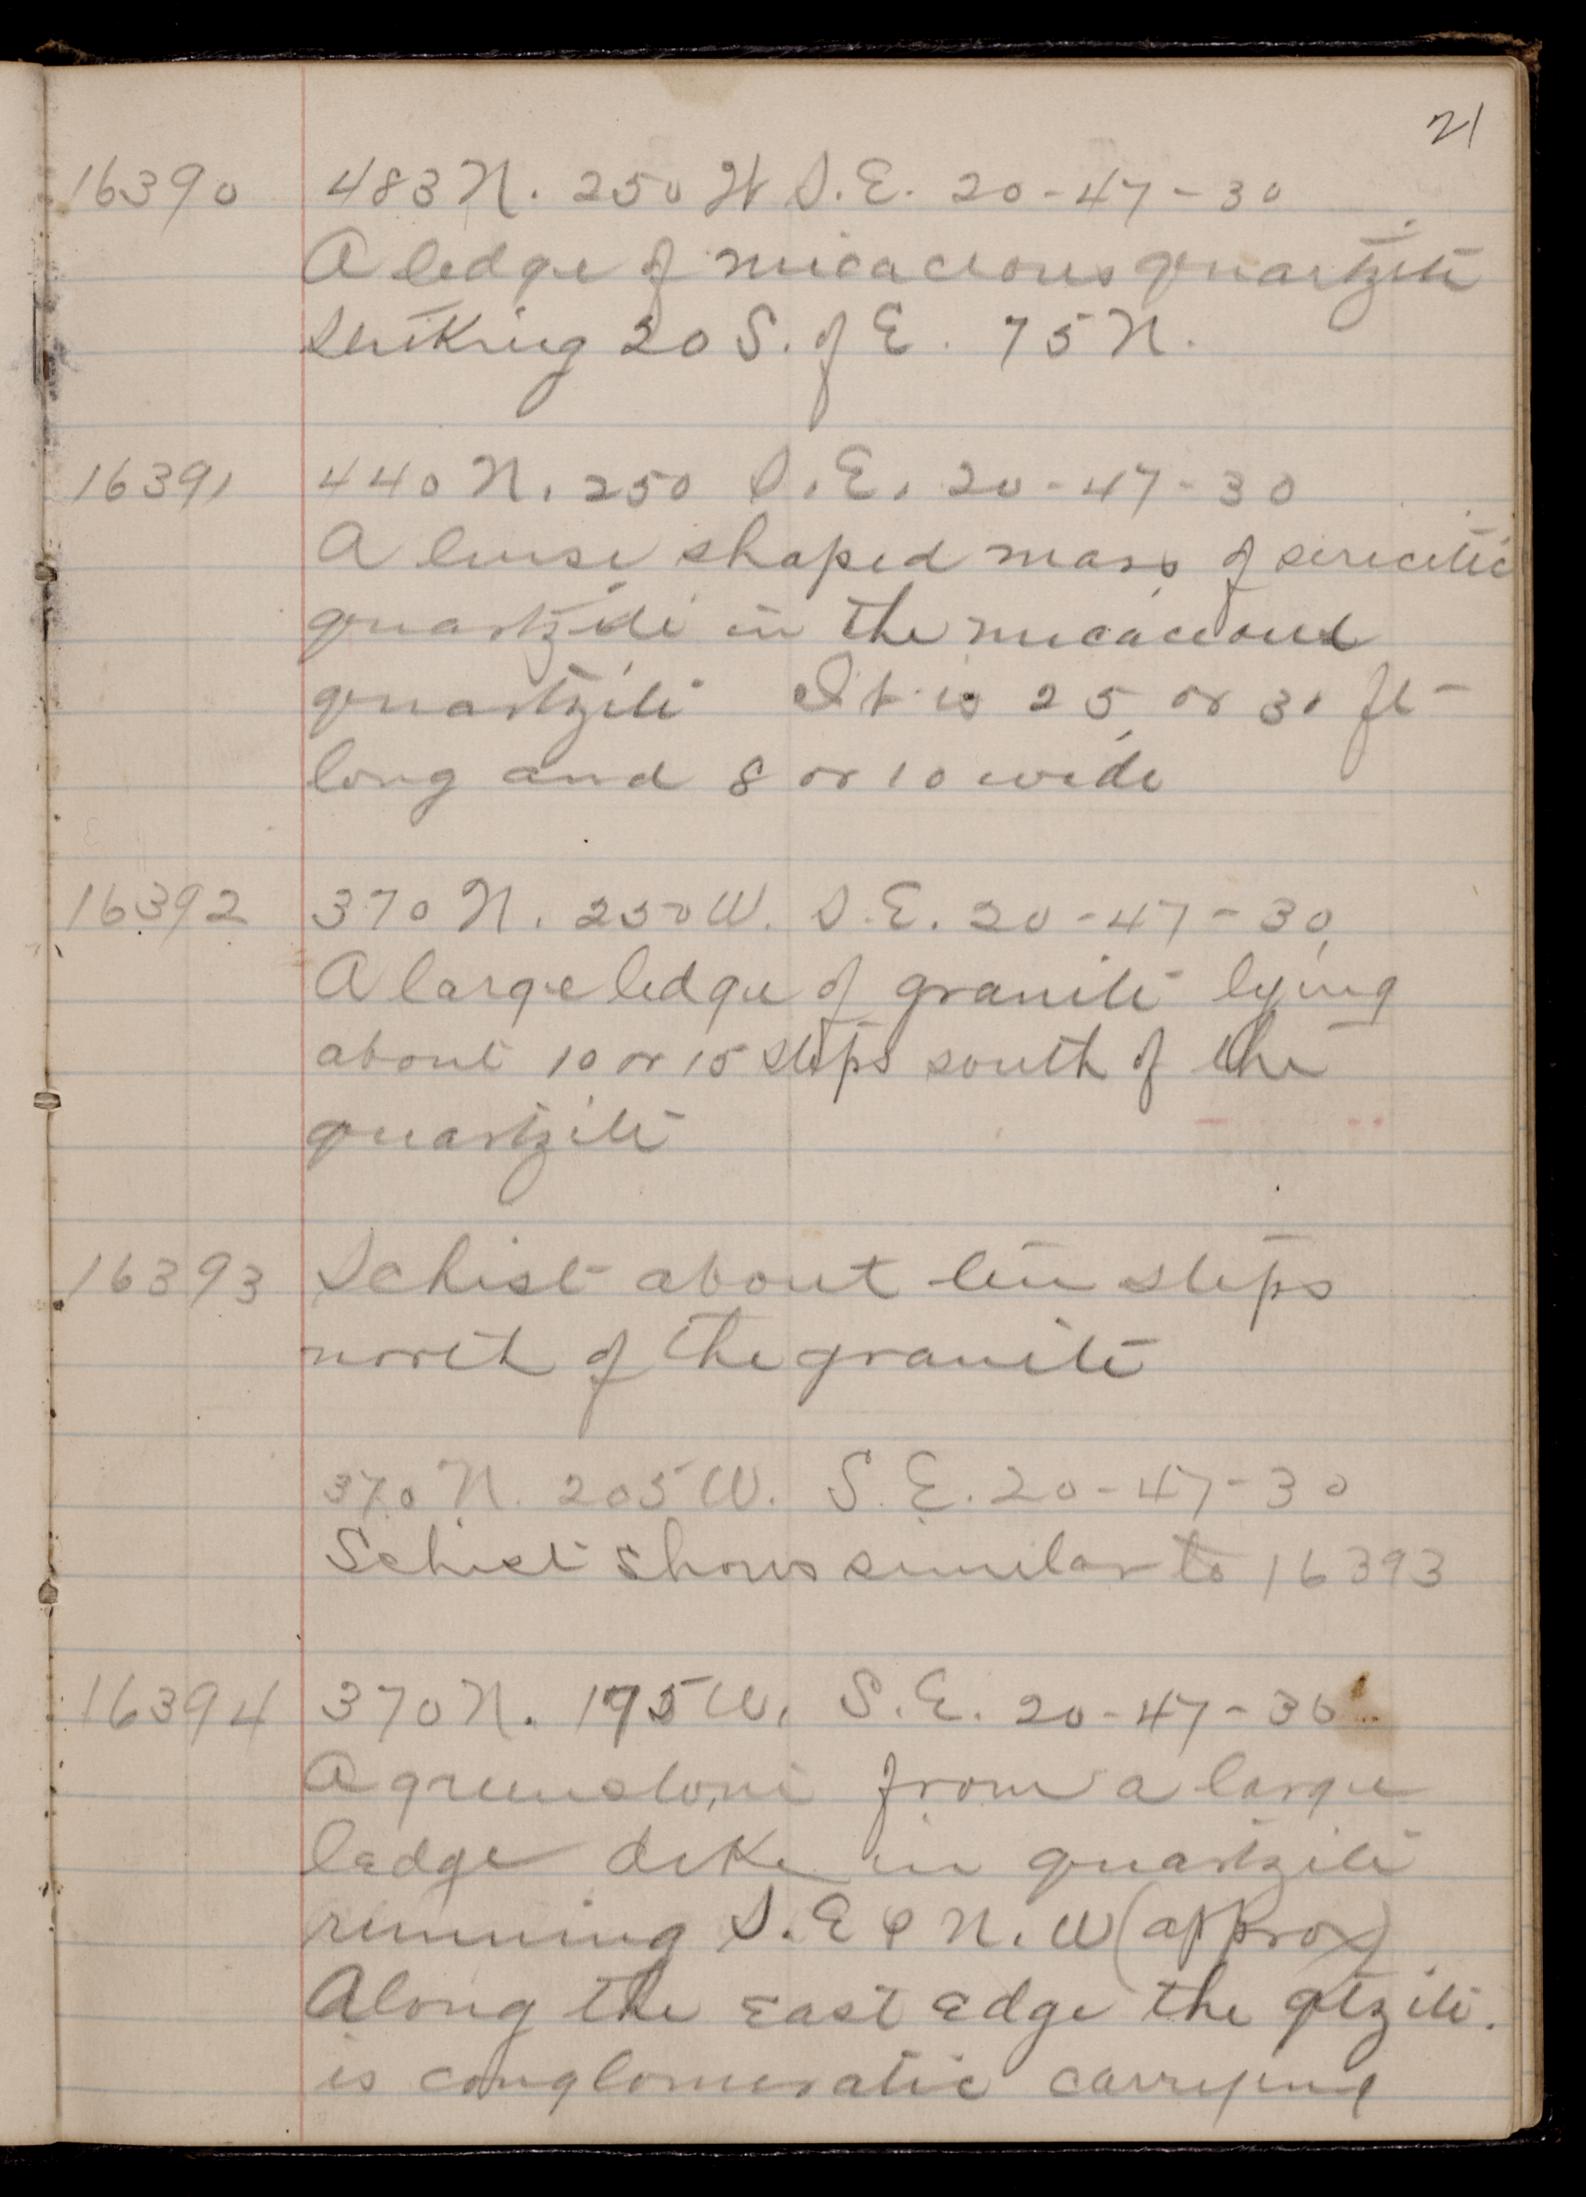 21
16390 483 N. 250 W S.E. 20-47-30
A ledge of micaceous quartzite
striking 20 S. of E. 75 N.
16391 440 N. 250 S.E. 20-47-30
A lense shaped mass of sericitic
quartzite in the micaceous
quartzite It is 25 or 30 ft
long and 8 or 10 wide
16392 370 N. 250 W. S.E. 20-47-30
A large ledge of granite lying
about 10 or 15 steps south of the
quartzite
16393 Schist about ten steps
north of the granite
370 N. 205 W. S.E. 20-47-30
Schist shows similar to 16393
16394 370 N. 195 W. S.E. 20-47-30
A greenstone from a large
ledge dike in quartzite
running S.E & N.W (approx)
Along the east edge the qtzite.
is conglomeratic carrying